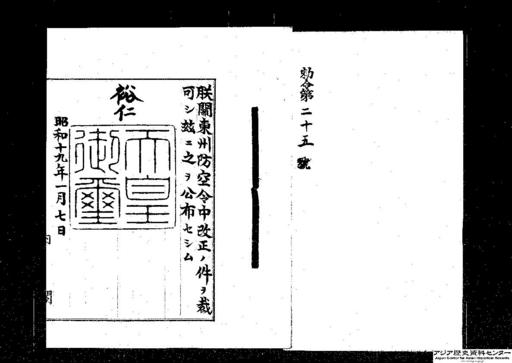 勅令第二十五號
朕關東州防空令中改正ノ件ヲ裁
可シ玆ニ之ヲ公布セシム
裕仁
天皇
御璽
昭和十九年一月七日
内閣
アジア歴史資料センター
Japan Center for Asian Historical Records